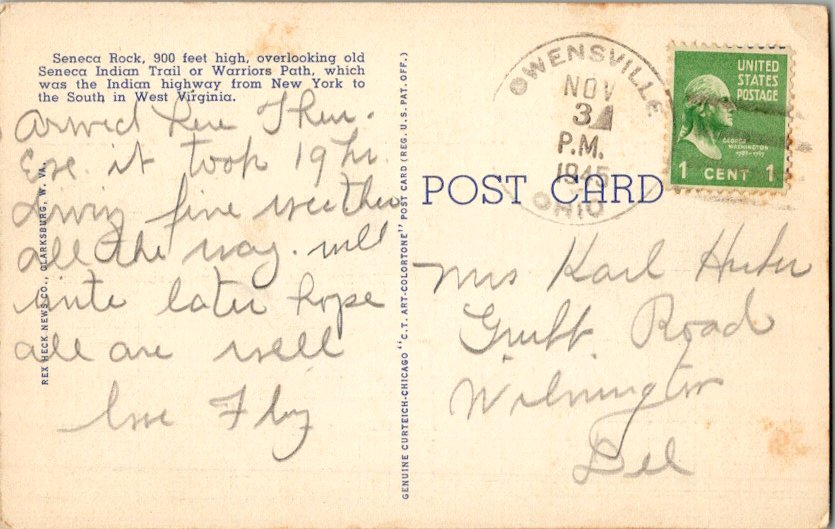 Seneca Rock, 900 feet high, overlooking old
Seneca Indian Trail or Warriors Path, which
was the Indian highway from New York to
the South in West Virginia.
Arived Thur.
Eve. it took 19 hr.
Driving fine weather
all the way. will
write later hope
all are well
love
REX HECK NEWS CO., CLARKSBURG, W. VA.
GENUINE CURTEICH-CHICAGO "C.T. ART-COLORTONE" POST CARD (REG. U.S. PAT. OFF.)
POST CARD
OWENSVILLE
NOV
3
P.M.
1945
OHIO
UNITED
STATES
POSTAGE
GEORGE
WASHINGTON
1789-1797
1 CENT 1
Mrs Karl
Road
Wilmington
Del